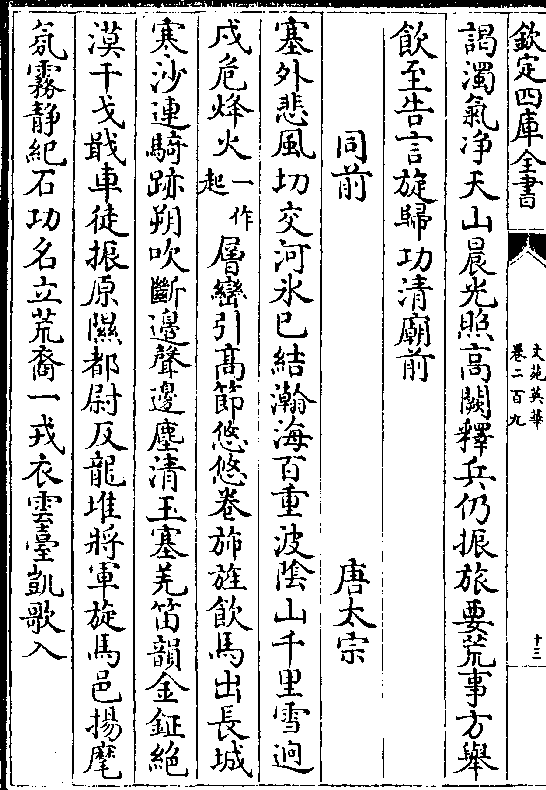 欽定四庫全書
文苑英華
卷二百九
十三
謁濁氣净天山晨光照高闕釋兵仍振旅要荒事方舉
飲至告言旋歸功清廟前
同前
唐太宗
塞外悲風切交河氷已結瀚海百重波陰山千里雪逈
戍危烽火一作起層巒引高節悠悠卷斾旌飲馬出長城
寒沙連騎跡朔吹斷邊聲邊塵清玉塞羌笛韻金鉦絶
漠干戈戢車徒振原隰都尉反龍堆將軍旋馬邑揚麾
氛霧靜紀石功名立荒裔一戎衣雲臺凱歌入